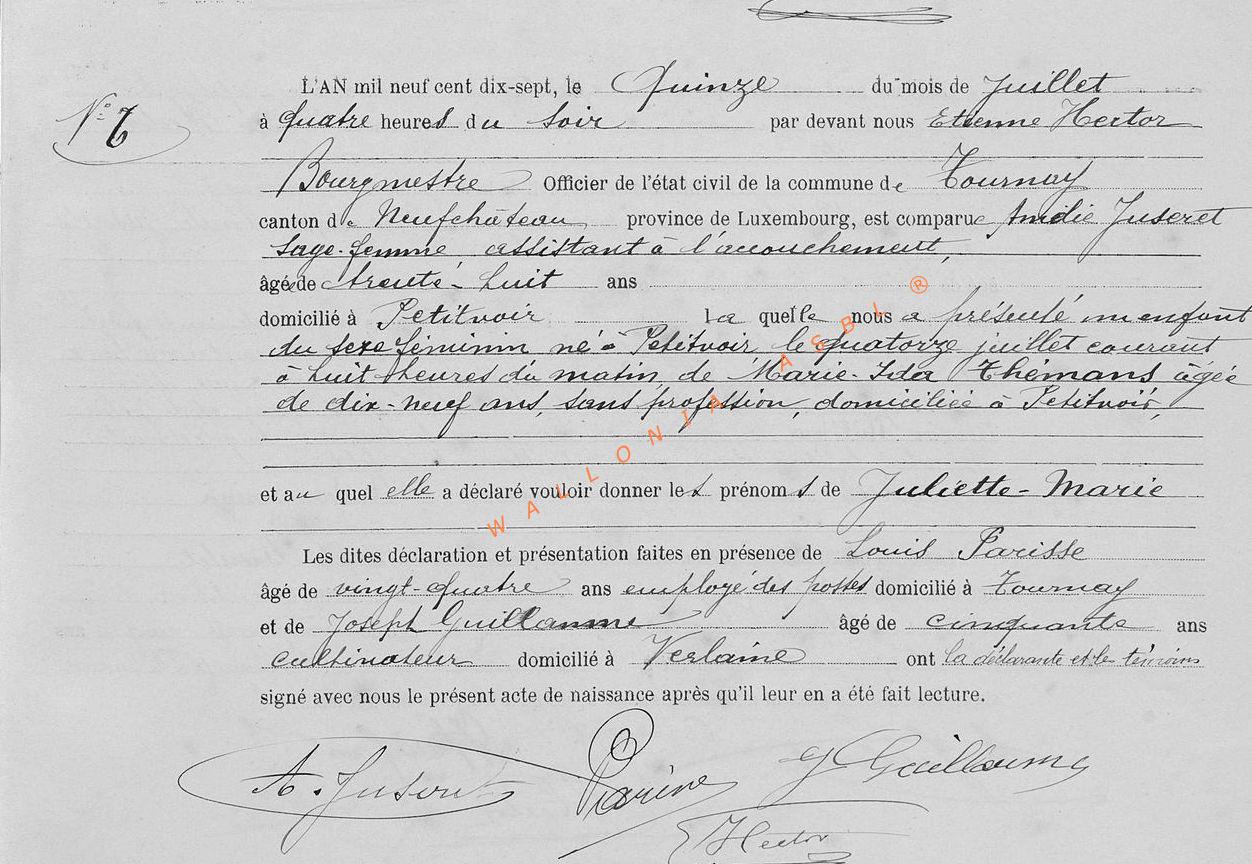 L'AN mil neuf cent dix-sept, le Quinze du mois de Juillet
N° 7
à Quatre heures du soir par devant nous Etienne Hector
Bourgmestre Officier de l'état civil de la commune de Tournay
canton de Neufchâteau province de Luxembourg, est comparue Amélie Juseret
sage-femme, assistant à l'accouchement,
âgée de trente-huit ans
domicilié à Petitvoir laquelle nous a présenté un enfant
du sexe féminin né à Petitvoir, le quatorze juillet courant
à huit heures du matin, de Marie-Ida Thémans âgée
de dix-neuf ans, sans profession, domiciliée à Petitvoir,
et au quel elle a déclaré vouloir donner les prénoms de Juliette-Marie
Les dites déclaration et présentation faites en présence de Louis Parisse
âgé de vingt-quatre ans employé des postes domicilié à Tournay
et de Joseph Guillaume âgé de cinquante ans
cultivateur domicilié à Verlaine ont la déclarante et les témoins
signé avec nous le présent acte de naissance après qu'il leur en a été fait lecture.
A. Juseret Parisse J Guillaume
E Hector
WALLONIA ASBL ®